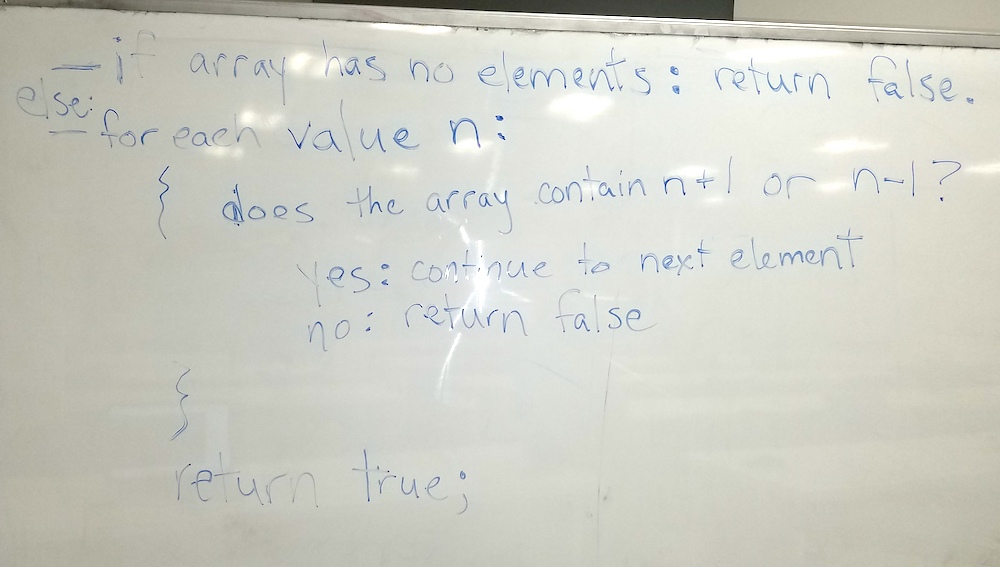 - if array has no elements: return false.
else:
- for each value n:
{ does the array contain n+1 or n-1?
yes: continue to next element
no: return false
}
return true;